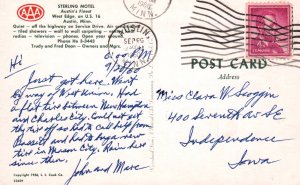 AAA
STERLING MOTEL
Austin's Finest
West Edge, on U.S. 16
Austin, Minn.
Quiet - off the highway on Service Drive. Air
tiled showers - wall to wall carpeting
radios - television - phones. Open year round.
Phone No. 8-3445
Trudy and Fred Dean - Owners and Mgrs.
Hi 6:00 PM
9/2/60
Just got here. Went
by way of West Union. Had
a flat tire between New Hampton
and Charles City. Could not get
the tire off so had to call help from
Bassett and had to buy a new
tire in Mason City. Rain here
since then.
John and Marc
Copyright 1956, L. L. Cook Co.
AUSTIN
MINN.
SEP
POST CARD
Address
Miss Clara W Scoggin
400 Seventh Av SE
Independence
Iowa